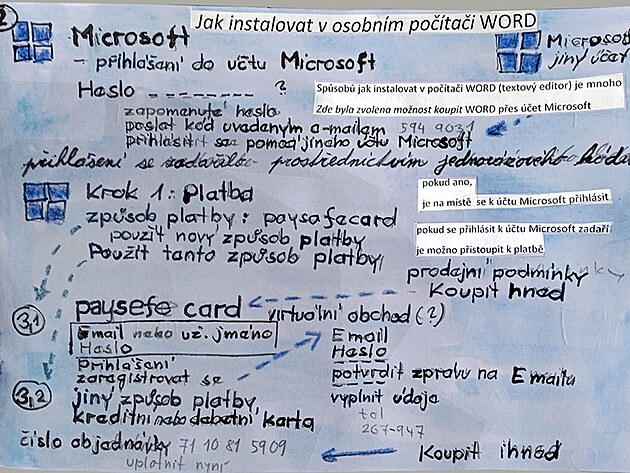 2
Jak instalovat v osobním počítači WORD
Microsoft
– přihlášaní do uctu Microsoft
Microsoft
jiný účet
Haslo ?
Spôsobů jak instalovat v počítači WORD (textový editor) je mnoho
Zde byla zvolena možnost koupit WORD přes účet Microsoft
zapomenuté heslo
poslat kód uvadaným e-mailam 594 9031
přihlásit sa pomoci jiného účtu Microsoft
přihlášení se zadařilo prostřednictvím jednorázového kódu
Krok 1: Platba
způsob platby: paysafecard
použít nový způsob platby
Použít tanto způsob platby
pokud ano,
je na místě se k účtu Microsoft přihlásit
pokud se přihlásit k účtu Microsoft zadaří
je možno přistoupit k platbě
prodajní podmínky
– Koupit hned
3,1
paysefe card
virtuální obchod (?)
Email nebo už. jméno
Haslo
přihlášaní
zaragistrovat se
Email
Haslo
potvrdit zprávu na Emailu
vyplnit údaja
tal
267-947
3,2
jiný způsob platby
kreditní nebo debetní karta
číslo objednávky 71 10 81 5909
uplatnit nyní
Koupit ihned